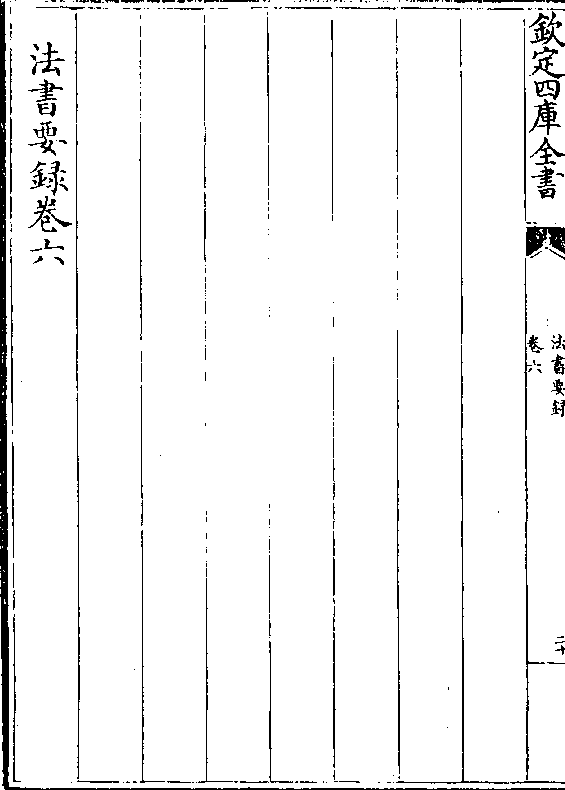 欽定四庫全書
法書要録
卷六
二十
法書要録卷六